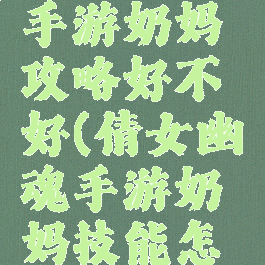 手游奶妈
攻略好不
好(倩女幽
魂手游奶
妈技能怎